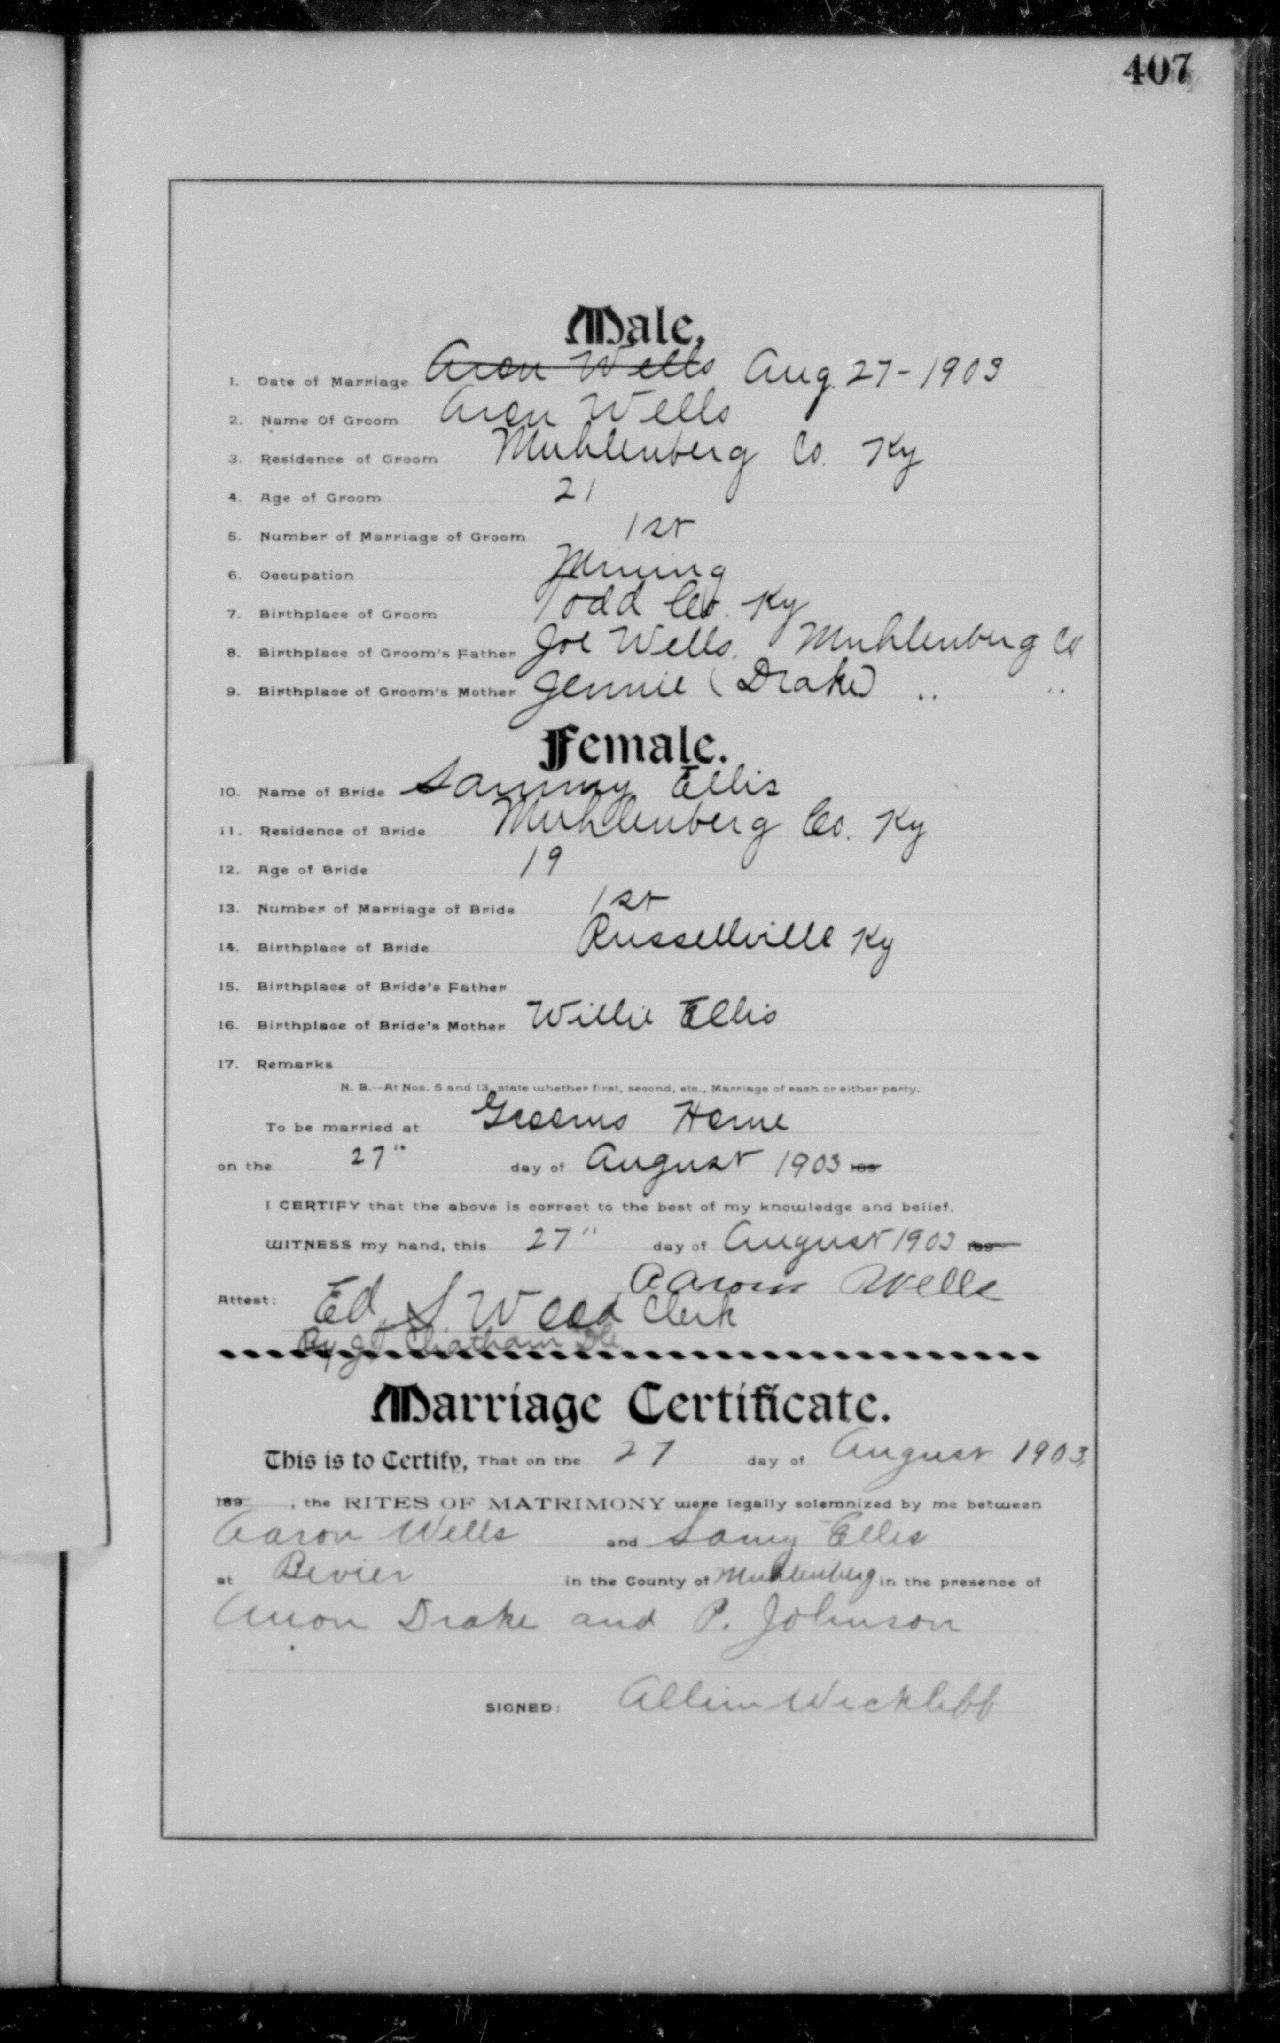 407
Male.
1. Date of Marriage Aron Wells Aug. 27 - 1903
2. Name Of Groom Aron Wells
3. Residence of Groom Muhlenberg Co. Ky
4. Age of Groom 21
5. Number of Marriage of Groom 1st
6. Occupation Mining
7. Birthplace of Groom Todd Co. Ky
8. Birthplace of Groom's Father Joe Wells. Muhlenberg Co
9. Birthplace of Groom's Mother Jennie (Drake) " "
Female.
10. Name of Bride Sammy Ellis
11. Residence of Bride Muhlenberg Co. Ky
12. Age of Bride 19
13. Number of Marriage of Bride 1st
14. Birthplace of Bride Russellville Ky
15. Birthplace of Bride's Father
16. Birthplace of Bride's Mother Willie Ellis
17. Remarks
N. B.—At Nos. 5 and 13, state whether first, second, etc., Marriage of each or either party.
To be married at Grooms Home
on the 27" day of August 1903 189
I CERTIFY that the above is correct to the best of my knowledge and belief.
WITNESS my hand, this 27" day of August 1903 189
Aaron Wells
Attest: Ed. S. Wood Clerk
By Chatham DC
Marriage Certificate.
This is to Certify, That on the 27 day of August 1903,
189 , the RITES OF MATRIMONY were legally solemnized by me between
Aaron Wells and Samy Ellis
at Bevier in the County of Muhlenberg in the presence of
Drake and P. Johnson
SIGNED: Allen Wickliff